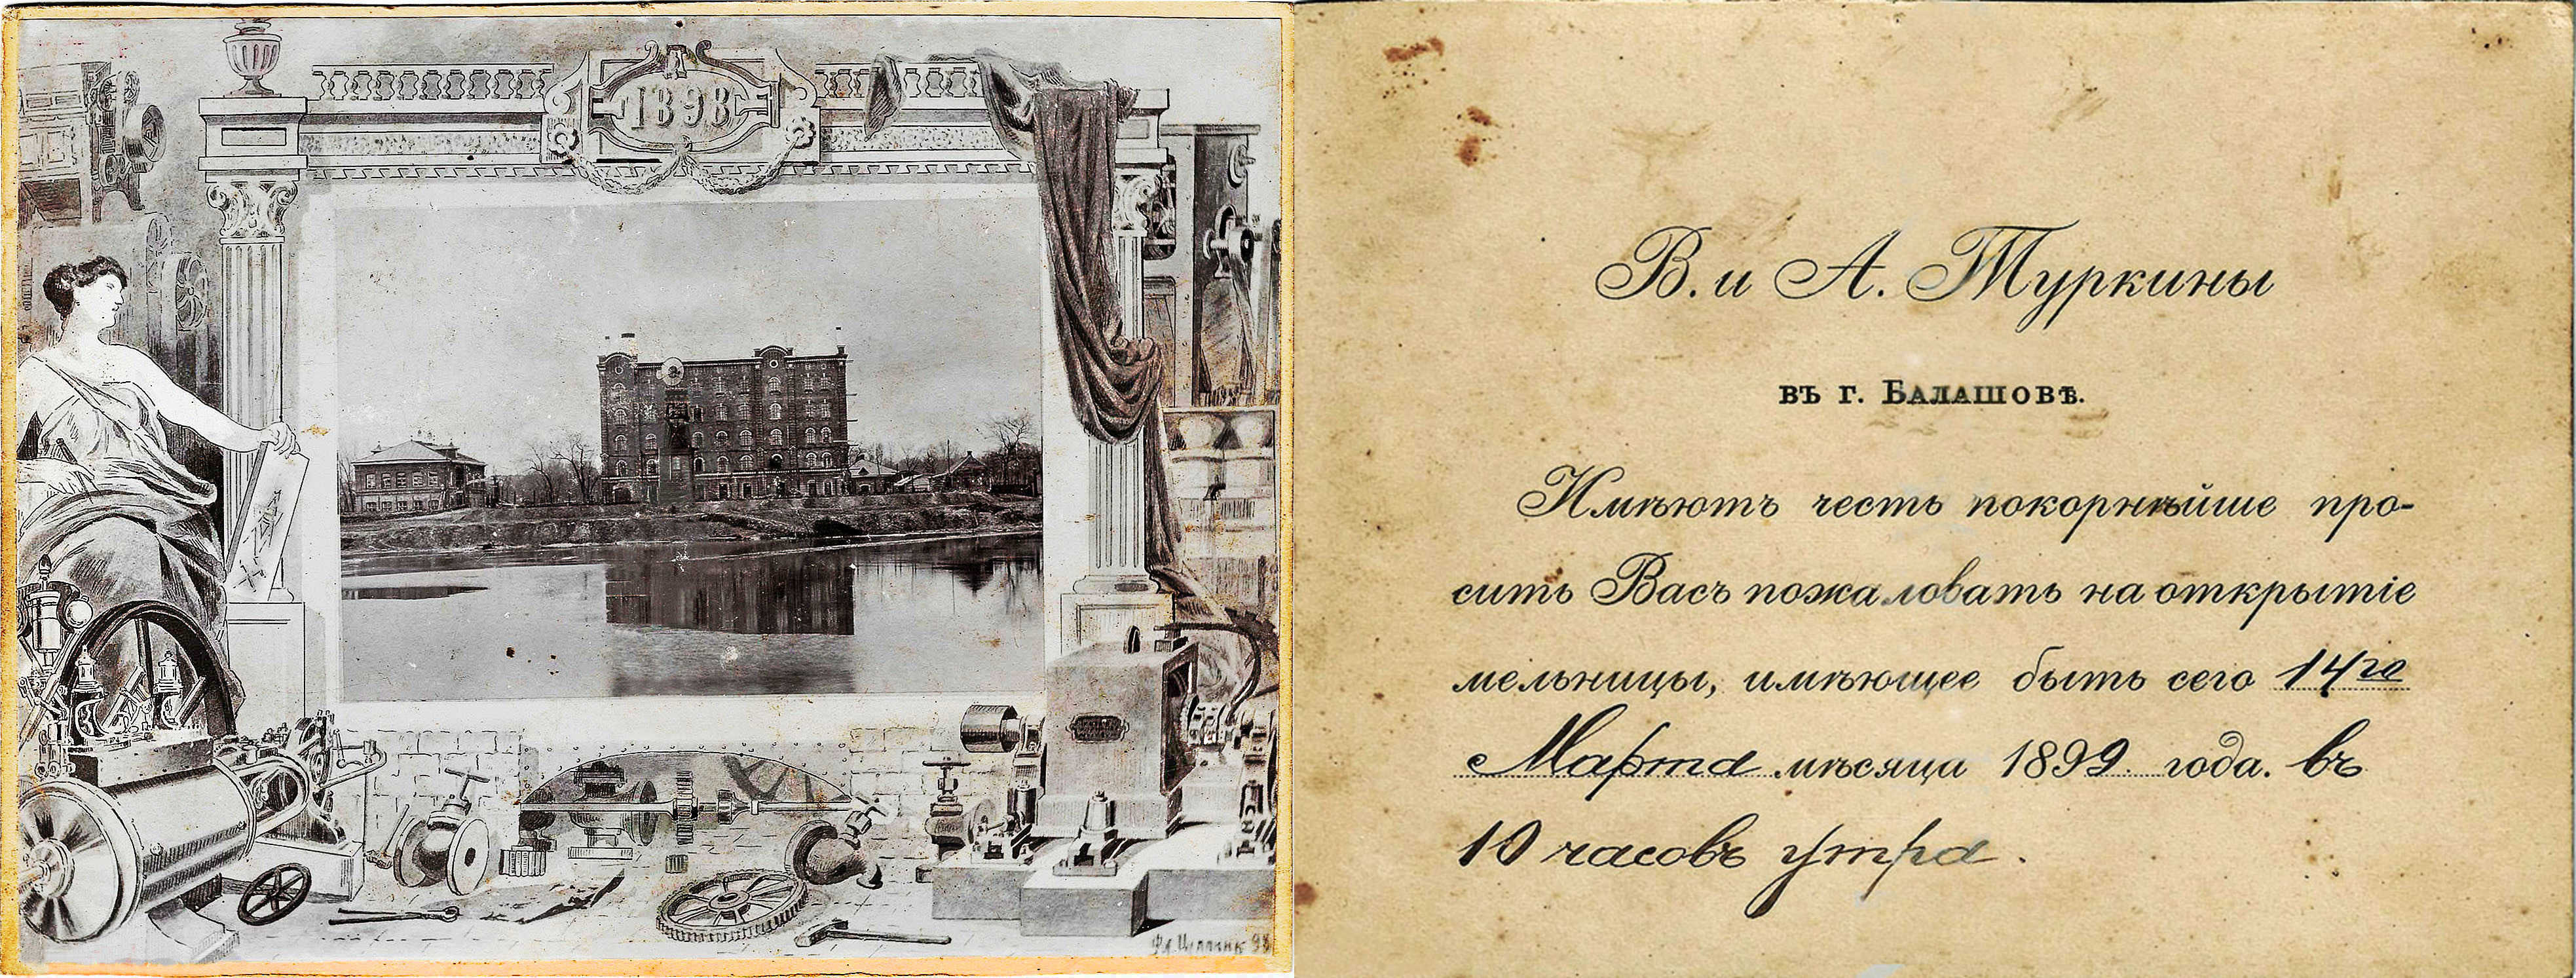 1898
В. и А. Туркины
въ г. Балашовѣ.
Имѣютъ честь покорнѣйше про-
сить Васъ пожаловать на открытіе
мельницы, имѣющее быть сего 14го
Марта мѣсяца 1899 года. въ
10 часовъ утра.